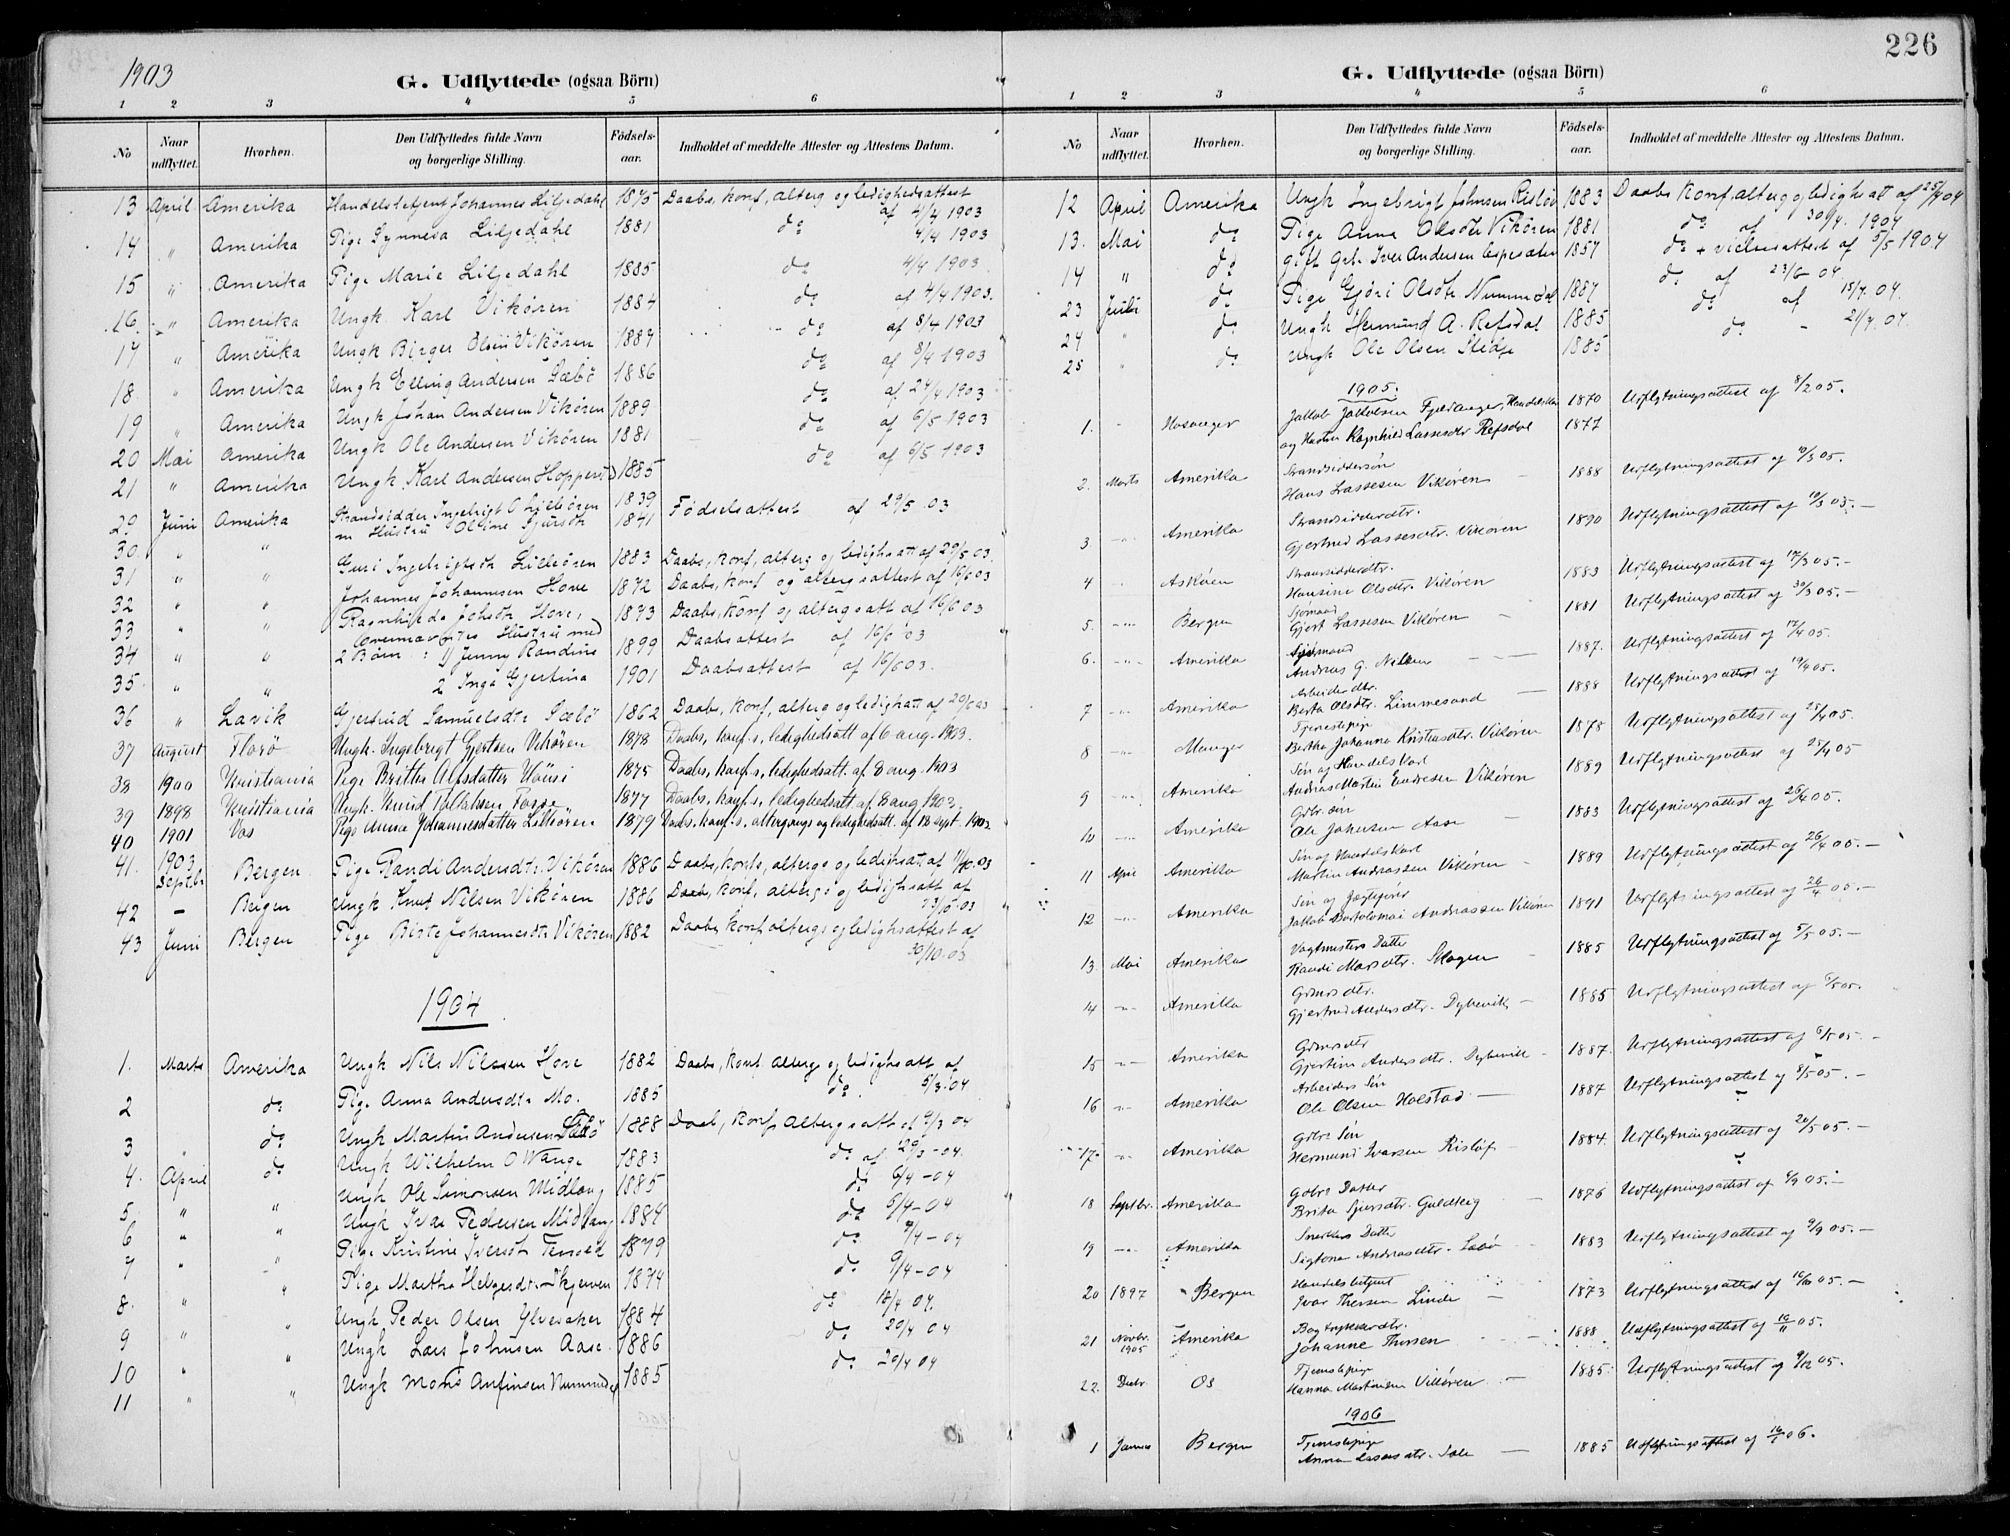 1903
G. Udflyttede (ogsaa Börn)
1 2 3 4 5 6
No Naar udflyttet. Hvorhen. Den Udflyttedes fulde Navn og borgerlige Stilling. Födsels-aar. Indholdet af meddelte Attester og Attestens Datum.
13 April Amerika Johannes Liljedahl 1875 Daabs, konf, alterg og ledighedsattest af 4/4 1903
14 " Amerika Pige Synneva Liljedahl 1881 do 4/4 1903
15 " Amerika Pige Marie Liljedahl 1885 do 4/4 1903
16 " Amerika Ungk. Karl Vikören 1884 do af 4/4 1903.
17 " Amerika Ungk Birger Olsen Vikören 1884 do af 8/4 1903
18 " Amerika Ungk Elling Andersen Sæbö 1886 do af 8/4 1903
19 " Amerika Ungk Johan Andersen Vikören 1889 do af 24/4 1903
20 Mai Amerika Ungk Ole Andersen Vikören 1881 do af 6/5 1903
21 " Amerika Ungk. Karl Andersen Hopperst 1885 do af 6/5 1903
29 Juni Amerika Strandsidder Ingebrigt O Lilleören 1839 Födselsattest af 29/5 03
30 " " m Hustru Oline Sjursdt 1841
31 " " Guri Ingebrigtsdt Lilleören 1883 Daabs, konf, alterg og ledighsatt af 29/5 03.
32 " " Johannes Johannesen Hove 1872 Daabs, konf og altergsattest af 16/6 03
33 " " Ragnhilda Johsdt Hove, 1873 Daabs, konf og altergsatt af 16/6 03
Hustru med
34 " " 2 Børn: 1) Jenny Randine 1899 Daabsattest af 16/6 03
35 " " 2 Inga Gjertina 1901 Daabsattest af 16/6 03.
36 " Lavik Gjertrud Samuelsdt Sæbö 1862 Daabs, konf, alterg og ledighatt af 20/6 03
37 August Florö Ungk. Ingebrigt Gjertsen Vikören 1878 Daabs, konf.s, ledighedsatt. af 6 aug. 1903.
38 1900 Kristiania Pige Brithe 1875 Daabs, konf.s, ledighedsatt. af 8 aug. 1903
39 1898 Kristiania Ungk. Knud 1877 Daabs, konf.s, ledighedsatt. af 8 aug. 1903.
40 1901 Vos Pige Anna Johannesdatter Lilleören 1879 Daabs, konf.s, altergangs og ledighedsatt. af 18 sept. 1903.
41. 1903 Septbr Bergen Pige Randi Andersdt. Vikören 1886 Daabs, konfs, altergs og ledighsatt. af 11/10.03
42 — Bergen Ungk Knut Nilsen Vikören 1886 Daabs, konf, altergs og ledighsatt af 23/10 03
43 Juni Bergen Pige Birte Johannesdt. Vikören 1882 Daabs, konf altergs og ledighsattest af 30/10.03
1904
1. Marts Amerika Ungk Nils Nilssen Hove 1882 Daabs, konf alterg og ledighsatt af
2 do Pige Anna Andersdt. Mo. 1885 do 5/3.04
3 do Ungk Martin Andersen Sæbö 1888 Daab, konf altergsatt af 9/3 04
4. April do Ungk Wilhelm O Wange 1883 do af 29/3-04.
5. " " Ungk Ole Simonsen Midlang 1885 do 6/4-04
6 " " Ungk Ivar Pedersen Midlang 1884 do 5/4-04
7 " " Pige Kristine Iversdt 1879 do 9/4-04
8. " " Pige Martha Helgesdt. Skjerven 1874 do 9/4-04
9 " " Ungk Peder Olsen Ylvesaker 1884 do 18/4 04.
10 " " Ungk Lars Johnsen Aase 1886 do 20/4 04
11 " " Ungk Mons Anfinsen 1885 do 20/4 04
226
G. Udflyttede (ogsaa Börn)
1 2 3 4 5 6
No Naar udflyttet. Hvorhen. Den Udflyttedes fulde Navn og borgerlige Stilling. Födsels-aar. Indholdet af meddelte Attester og Attestens Datum.
12 April Amerika Ungk Ingebrigt Johnsen Rislöv 1883 Daabs konf, alterg og ledigh att af 25/4 04
13. Mai do Pige Anna Olsdtr Vikören 1881 do af 30/4. 1904
14 " do gift Grb. Iver Andersen 1857 do + vielsesattest af 5/5 1904
23 Juli do Pige Gjöri Olsdtr 1887 do af 23/6 04
24 " do Ungk Hermund A. Refsdal 1885 do af 15/7. 04.
25 " do Ungk Ole Olsen 1885 do - 21/7. 04.
1905.
1. " Jakob Fjeldanger, 1870 Udflytningsattest af 8/2 05.
og Hustru Ragnhild Lassesdtr Refsdal 1877
2. Marts Amerika Strandsiddersön Hans Lassesen Vikören 1888 Udflytningsattest af 10/3 05.
3 " Amerika Strandsidderdtr. Gjertrud Lassesdtr. Vikören 1890 Udflytningsattest af 10/3 05.—
4 " Askøen Strandsidderdtr. Hansine Olsdtr. Vikören 1883 Udflytningsattest af 17/3 05.—
5. " Bergen Sjømand Gjert Lassesen Vikören 1881 Udflytningsattest af 30/3 05.—
6. " Amerika Sjømand Andreas G. Nilsen 1887. Udflytningsattest af 17/4 05.
7 " Amerika Arbeiderdtr. Berta Olsdtr. Limmesand 1888 Udflytningsattest af 19/4 05.
8 " Manger Tjenestepige Bertha Johanna Kristiansdtr. Vikören 1878 Udflytningsattest af 25/4 05.
9 " Amerika Søn og Handelskarl Andreas Martin Endresen Vikören 1889 Udflytningsattest af 25/4 05
10 " Amerika Grbr. søn Ole Johnsen Aase 1883 Udflytningsattest af 26/4 05.
11 April Amerika Søn og Handelskarl Martin Andreassen Vikören 1889 Udflytningsattest af 26/4 05.—
12 " Amerika Søn og Jakob Bartolomai Andreassen Vikören 1891 Udflytningsattest af 26/4 05.—
13 Mai Amerika Vagtmesters Datter Randi 1885 Udflytningsattest af 5/5 05.—
14 " Amerika Grbrs dtr. Gjertrud Andersdtr. Dybevik 1885 Udflytningsattest af 6/5 05.
15 " Amerika Grbrs dtr Gjertine Andersdtr. Dybevik 1887. Udflytningsattest af 6/5 05.—
16 " Amerika Arbeiders Søn Ole Olsen Holstad 1887 Udflytningsattest af 8/5 05.—
17 " Amerika Grbr. Søn Hermund Ivarsen Risløf 1884. Udflytningsattest af 20/5 05.—
18 Septbr. Amerika Gdbrs Datter Brita Sjursdtr. 1876 Udflytningsattest af 6/9 05.—
19 " Amerika Snedkers Datter Andreasdtr. Sæbø 1883 Udflytningsattest af 9/9 05.—
20 1897 Bergen Handelsbetjent Ivar Thorsen Linde 1873 Udflytningsattest af 16/10 05.—
21 Novbr. 1905 Amerika Bogtrykkerdtr. Johanne Thorsen 1888 Udflytningsattest af 10/11 05.
22. Decbr Os Tjenestepige Hanna Martinsen Vikören 1885 Udflytningsattest af 9/12 05.
1906
1 Januar Bergen Tjenestepige Anna Lassesdtr. Tale 1885 Udflytningsattest af 16/1 06.